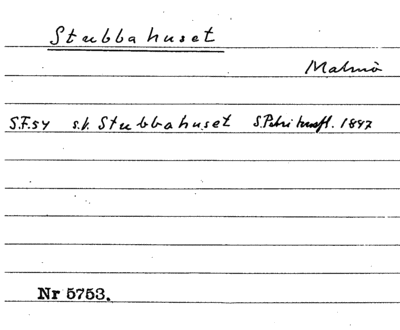 Stubbahuset
Malmö
S.F.54 s.k. Stubbahuset S.Petri 1847
Nr 5753.